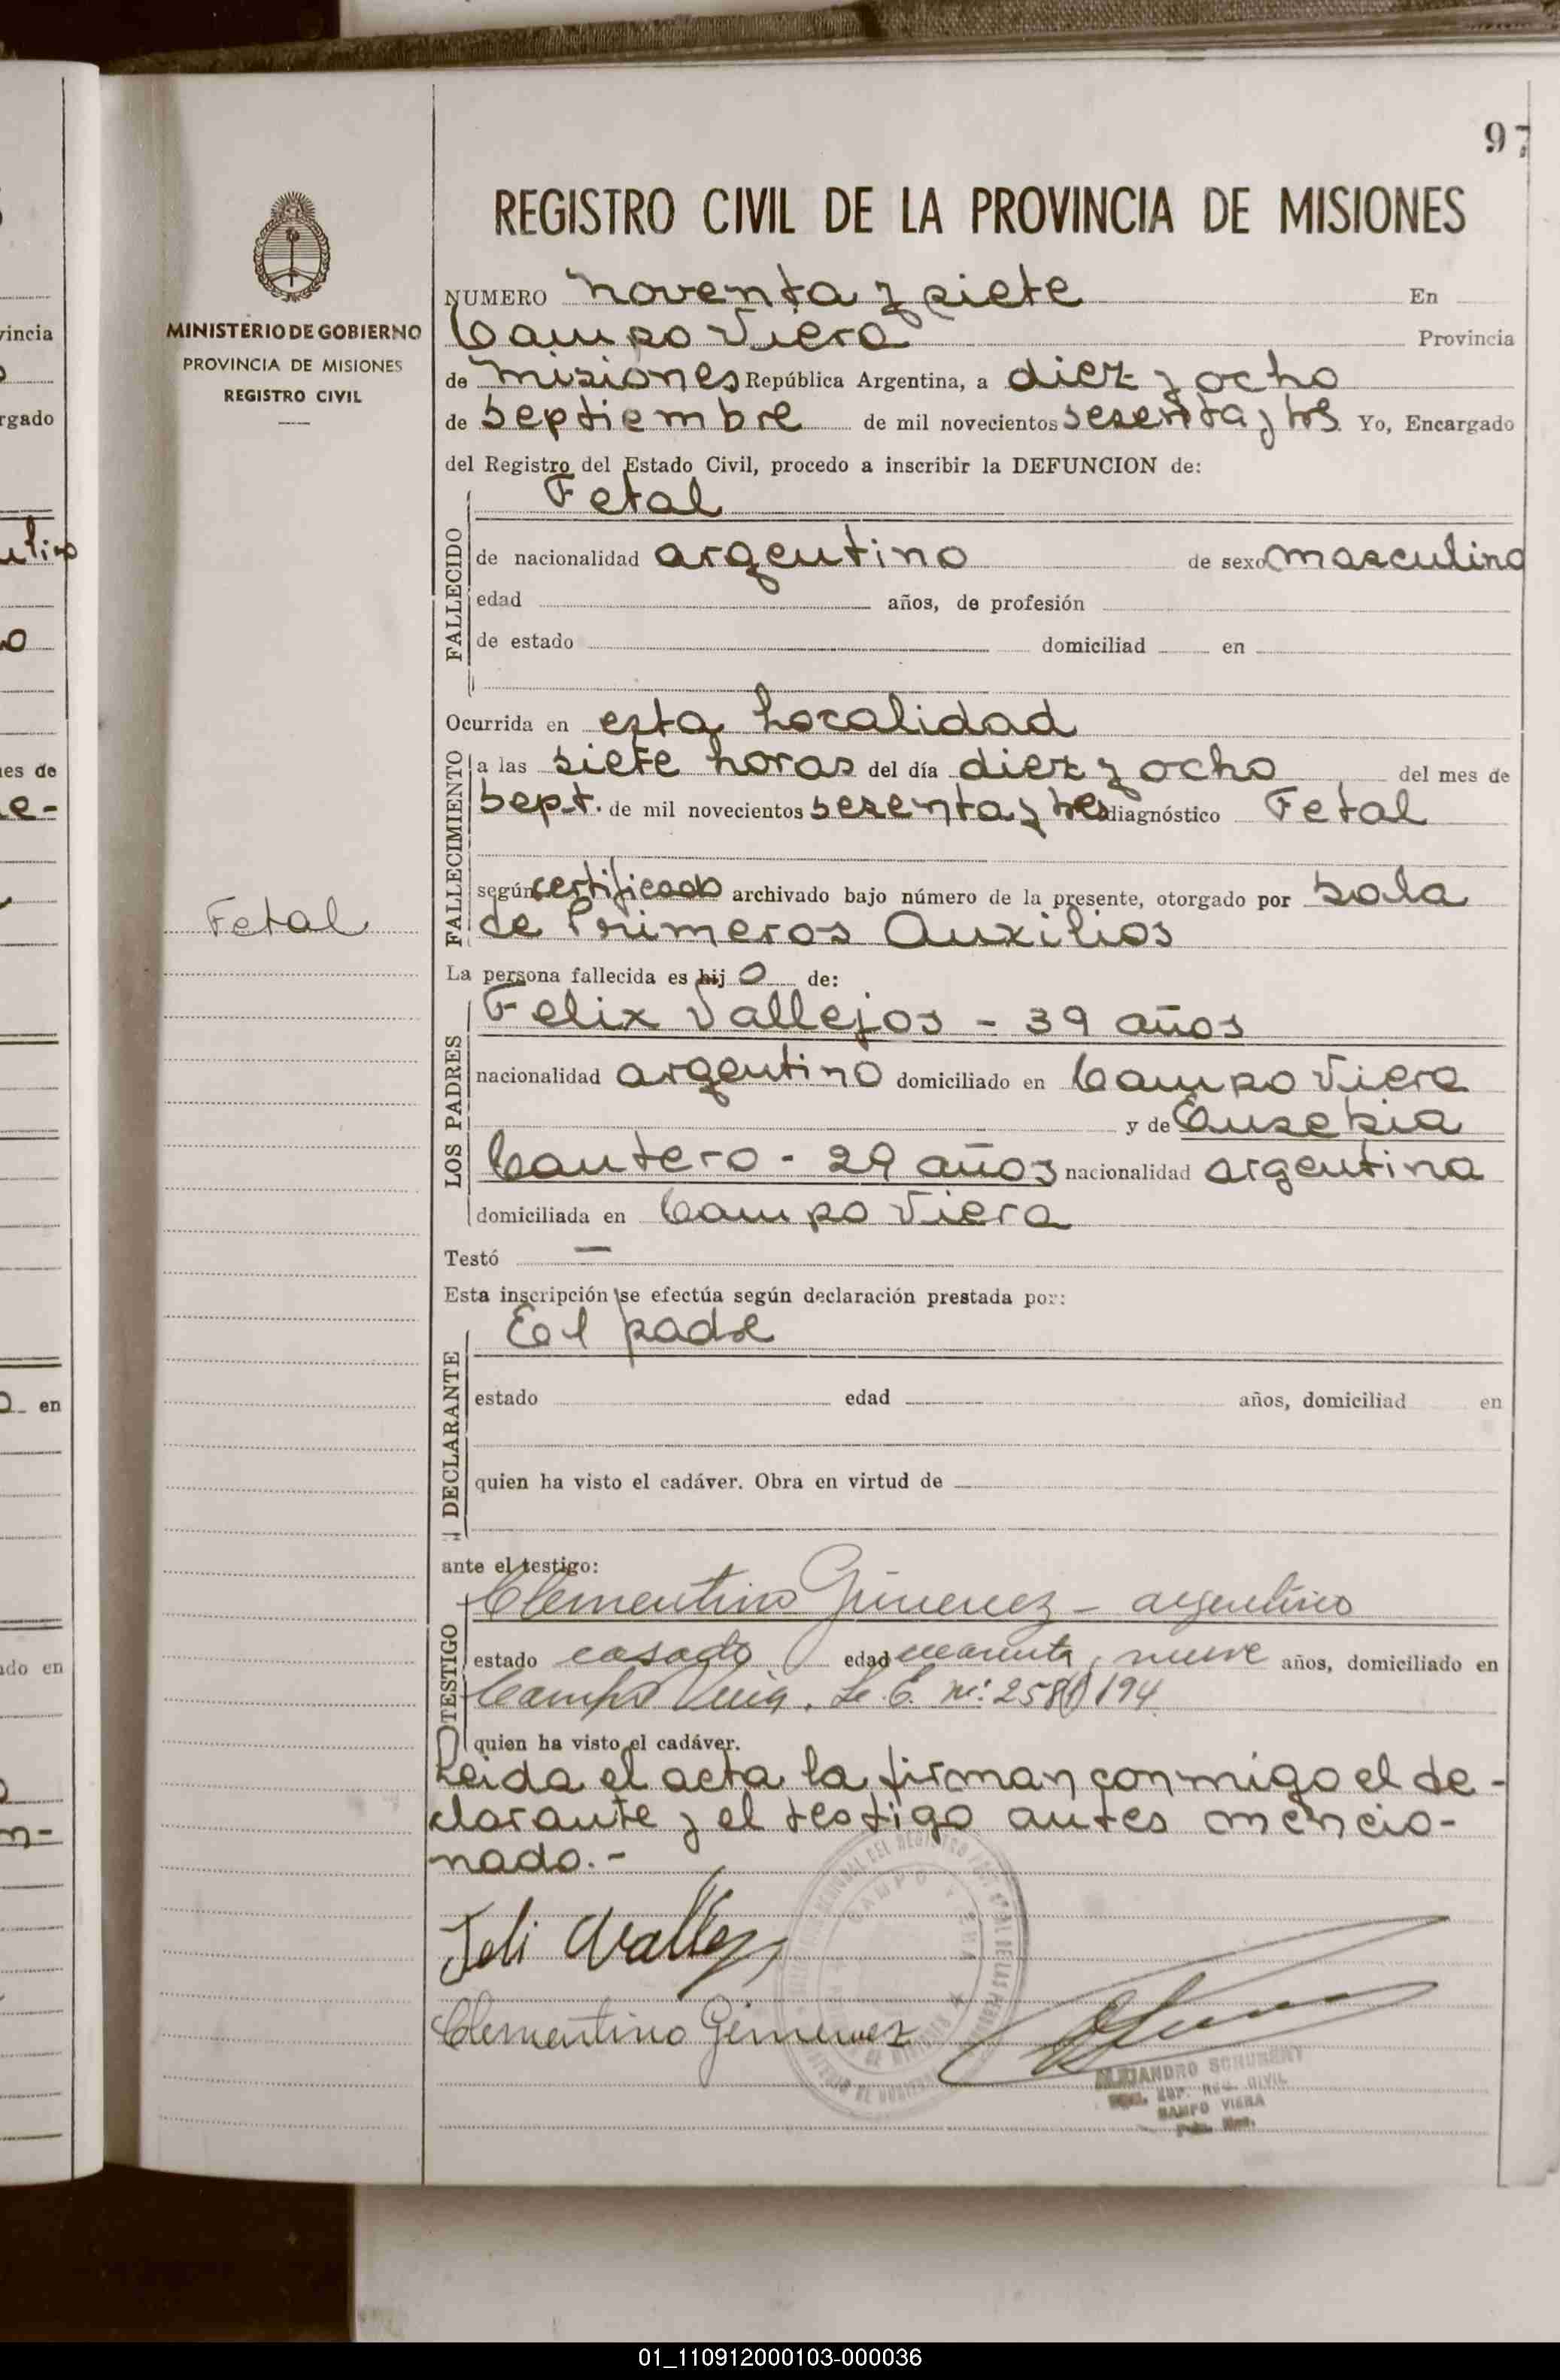 97
REGISTRO CIVIL DE LA PROVINCIA DE MISIONES
MINISTERIO DE GOBIERNO
PROVINCIA DE MISIONES
REGISTRO CIVIL
NUMERO noventa y siete En
Campo Viera Provincia
de misiones República Argentina, a diez y ocho
de septiembre de mil novecientos sesenta y tres Yo, Encargado
del Registro del Estado Civil, procedo a inscribir la DEFUNCION de:
Fetal
FALLECIDO
de nacionalidad argentino de sexo masculino
edad años, de profesión
de estado domiciliad en
Ocurrida en esta localidad
FALLECIMIENTO
a las siete horas del día diez y ocho del mes de
Sept. de mil novecientos sesenta y tres diagnóstico Fetal
según certificado archivado bajo número de la presente, otorgado por sala
Fetal
de Primeros Auxilios
La persona fallecida es hij o de:
LOS PADRES
Felix Vallejos - 39 años
nacionalidad argentino domiciliado en Campo Viera
y de Eusebia
Cantero - 29 años nacionalidad argentina
domiciliada en Campo Viera
Testó —
Esta inscripción se efectúa según declaración prestada por:
DECLARANTE
El padre
estado edad años, domiciliad en
quien ha visto el cadáver. Obra en virtud de
ante el testigo:
TESTIGO
Clementino Gimenez - argentino
estado casado edad cuarenta y nueve años, domiciliado en
Campo Viera. L. E. nº:
quien ha visto el cadáver.
Leida el acta la firman conmigo el de-
clarante y el testigo antes mencio-
nado.-
Clementino Gimenez
CAMPO VIERA
DE MISIONES
ALEJANDRO SCHUBERT
REG. CIVIL
CAMPO VIERA
vincia
rgado
es de
e-
en
do en
n-
01_110912000103-000036